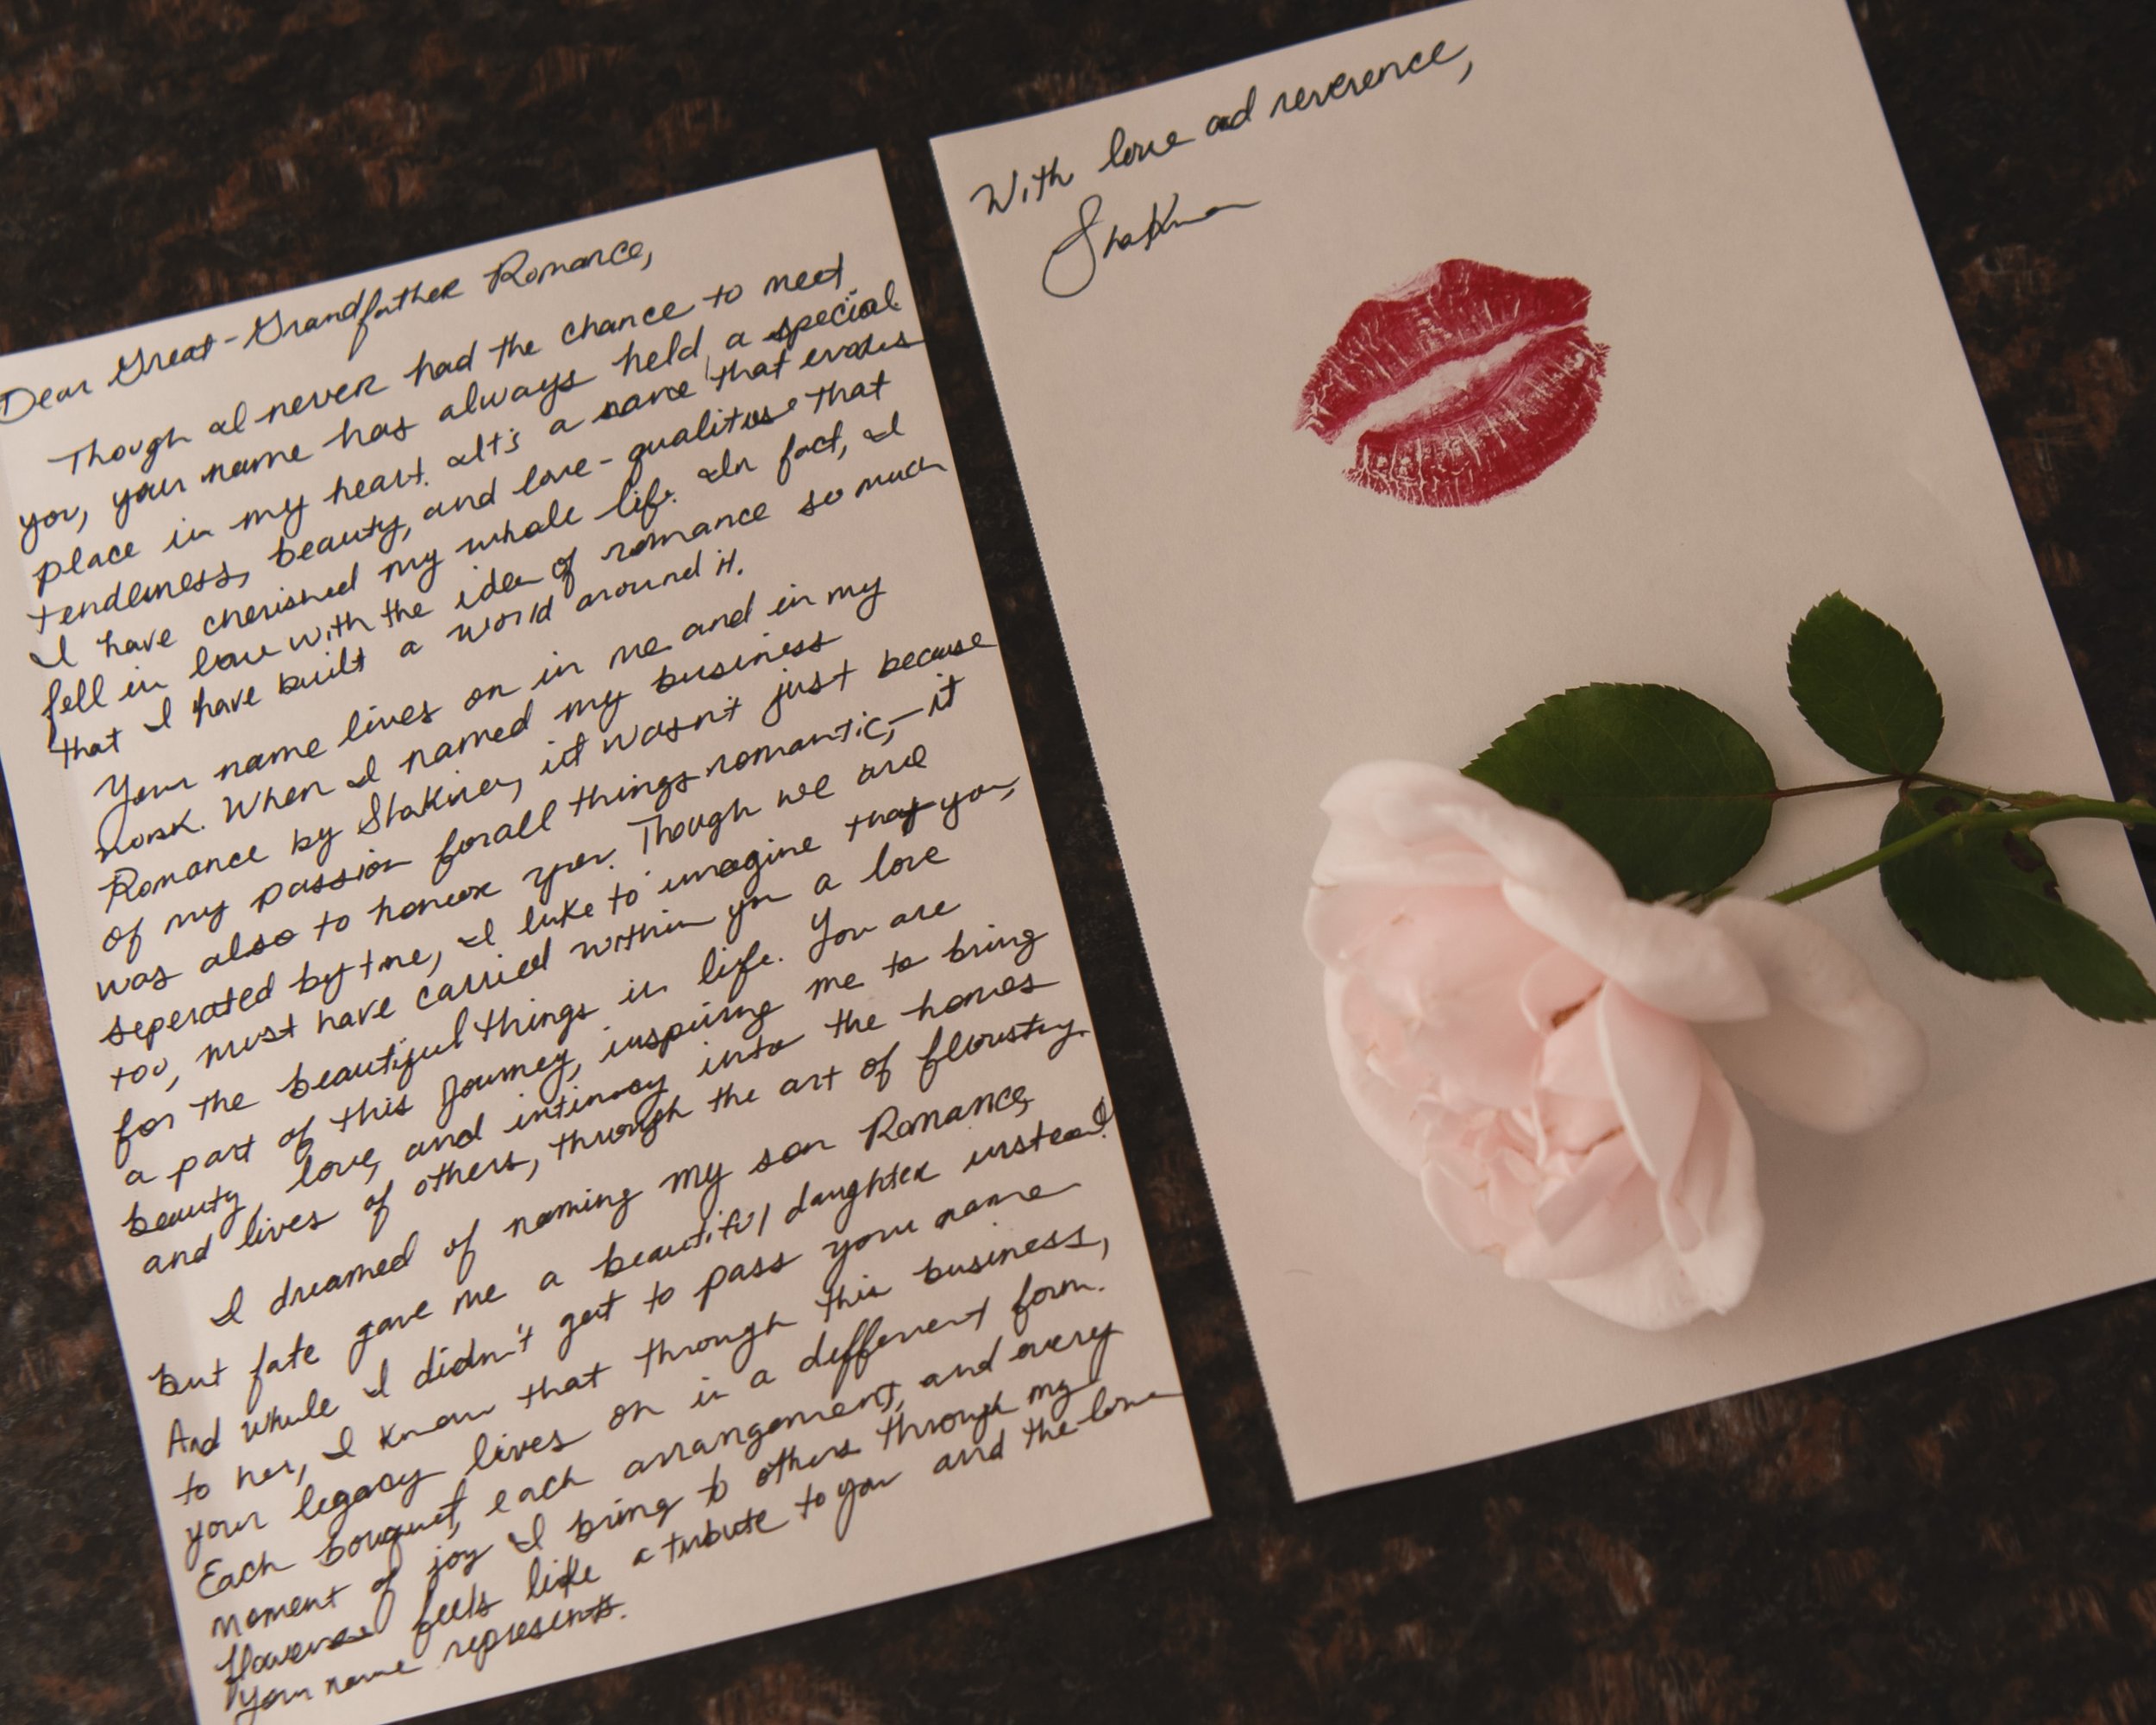 Dear Great-Grandfather Romance,
Though I never had the chance to meet
you, your name has always held a special
place in my heart. It's a name that evokes
tenderness, beauty, and love - qualities that
I have cherished my whole life. In fact, I
fell in love with the idea of romance so much
that I have built a world around it.
Your name lives on in me and in my
work. When I named my business
Romance by Shakira, it wasn't just because
of my passion for all things romantic, - it
was also to honor you. Though we are
seperated by time, I like to imagine that you,
too, must have carried within you a love
for the beautiful things in life. You are
a part of this journey, inspiring me to bring
beauty, love, and intimacy into the homes
and lives of others, through the art of floristry.
I dreamed of naming my son Romance,
but fate gave me a beautiful daughter instead.
And while I didn't get to pass your name
to her, I know that through this business,
your legacy lives on in a different form.
Each bouquet, each arrangement, and every
moment of joy I bring to others through my
flowers feels like a tribute to you and the love
your name represents.
With love and reverence,
Shakira